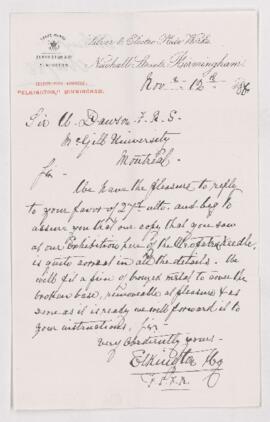 Silver & Electro Plate Works
Newhall Street, Birmingham
TELEGRAPHIC ADDRESS,
"ELKINGTON," BIRMINGHAM.
Nov. 12th
Sir W. Dawson F.R.S
McGill University
Montreal
Sir
We have the pleasure to reply
to your favor of 27th ulto. and beg to
assure you that our copy that you saw
at our Exhibition here of the Cleopatra Needle,
is quite correct in all the details. We
will fit a piece of bronzed metal to cover the
broken base, removable at pleasure & as
soon as it is ready we will forward it to
your instructions,
Very obediently yours
Elkington & Co